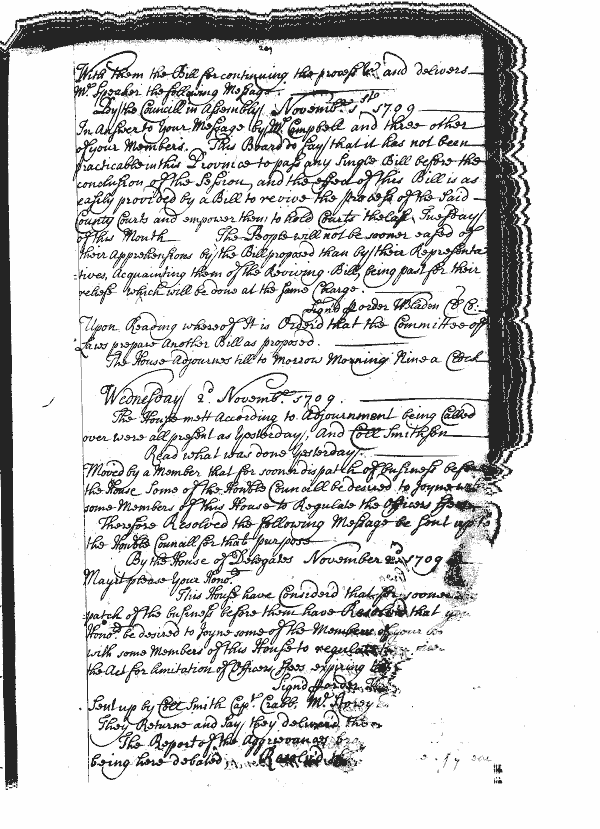 With them the Bill for continuing the process &c. and delivers
Mr. Speaker the following Message.
By the Councill in Assembly Novembr. 1st 1709
In Answer to Your Message by Mr. Campbell and three other
of your Members. This Board do say that it has not been
practicable in this Province to pass any Single Bill before the
conclusion of the Session, and the effect of this Bill is as
easily provided by a Bill to revive the process of the Said
County Courts and empower them to hold Courts the last Tuesday
of this Month The People will not be sooner eased of
their Apprehensions by the Bill proposed than by their Representa
tives, Acquainting them of the Reviving Bill, being past for their
reliefe which will be done at the same Charge.
Signd p order W Bladen Cl. C.
Upon Reading whereof It is Orderd that the Committee of
Laws prepare Another Bill as proposed.
The House Adjournes till to Morrow Morning Nine a Clock
Wednesday 2d. Novembr. 1709.
The House mett According to Adjournment being Called
over were all present as Yesterday, And Coll Smithson
Read what was done Yesterday.
Moved by a Member that for sooner dispatch of business before
the House Some of the Honble Councill be desired to Joyne with
some Members of this House to Regulate the Officers Fees
Therefore Resolved the following Message be Sent up to
the Honble Councill for that purpose
By the House of Delegates November 2d 1709
May it please Your Honrs.
This House have Considerd that for sooner
patch of the business before them have Resolved that
Honrs. be desired to Joyne some of the Members of your
with some Members of this House to regulate
the Act for limitation of Officers Fees expiring
Signd p order
Sent up by Coll Smith Capt. Crabb, Mr.
They Returne and Say they delivered them
The Report of the Aggrievances
being here debated, Resolved